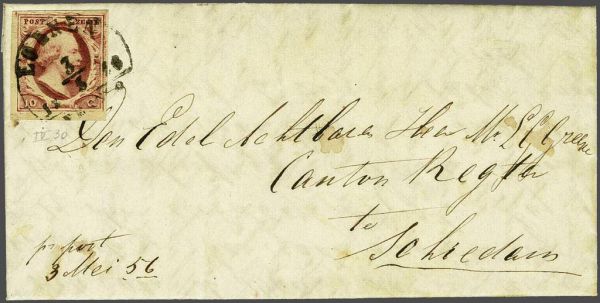 POST ZEGEL
10 C
IV 30
Den Edel Achtbaren Heer Mr. 
Canton Regter
te
Schiedam
pr post
3 Mei 56